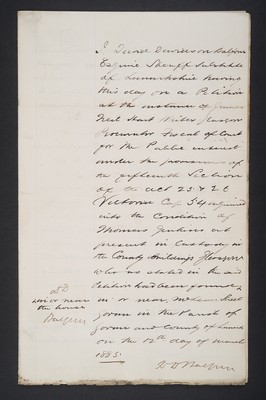 I David Davidson Balfour
Esquire Sheriff Substitute
of Lanarkshire having
this day on a Petition
at the instance of James
Neil Hart Writer Glasgow
Procurator Fiscal of Court
for the Public interest
under the provisions of
the fifteenth Section
of the Act 25 & 26
Victoria Cap 54 inquired
into the Condition of
Thomas Jenkins at
present in Custody in
the County Buildings Glasgow
who as stated in the said
Petition had been found
in or near McLean Street
Govan in the Parish of
Govan and County of Lanark
on the 12th day of March
1885.
in or near
the house
Balfour